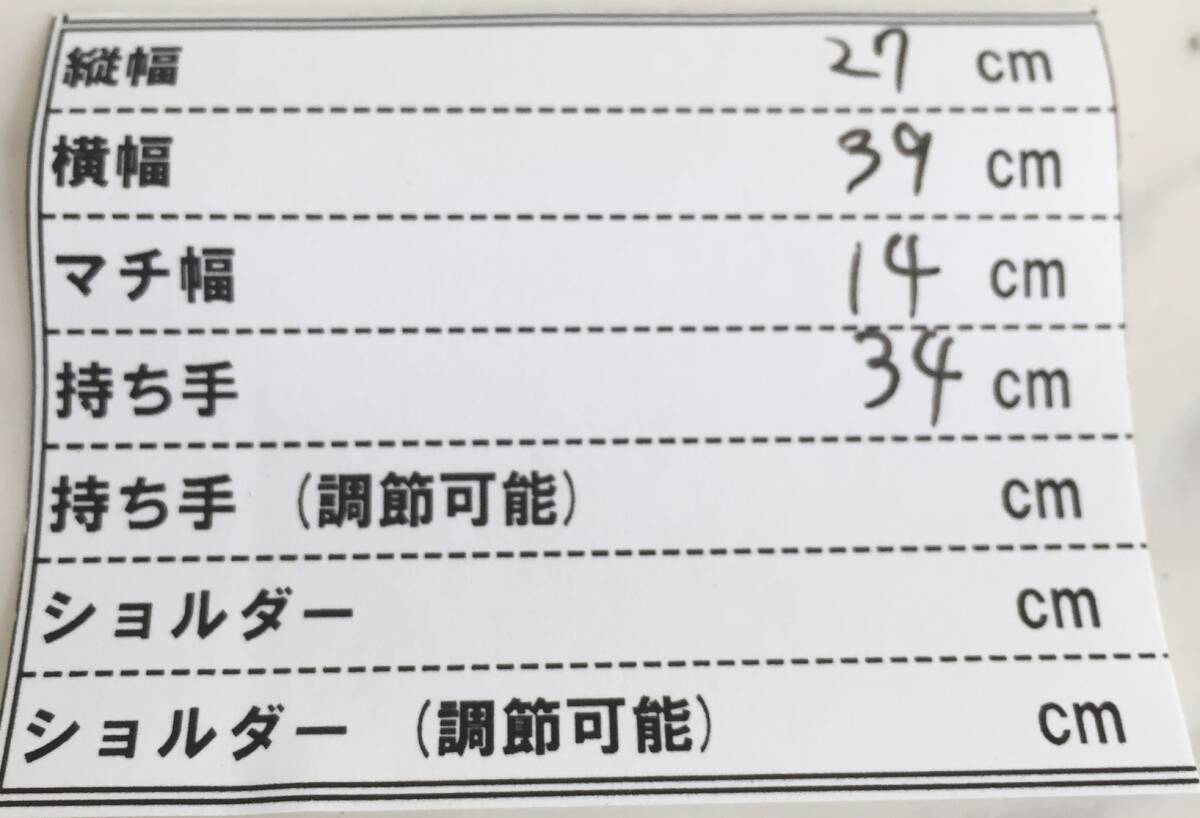 縦幅 27 cm
横幅 39 cm
マチ幅 14 cm
持ち手 34 cm
持ち手 (調節可能) cm
ショルダー cm
ショルダー (調節可能) cm